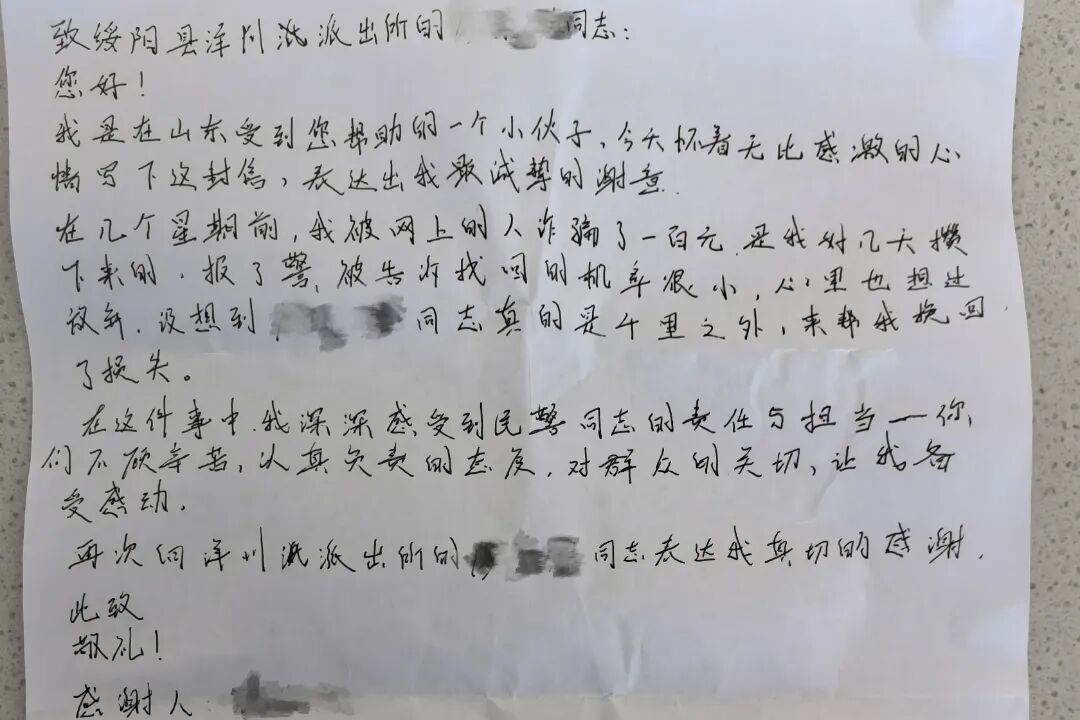 致绥阳县洋川派出所的 同志:
您好!
我是在山东受到您帮助的一个小伙子,今天怀着无比感激的心
情写下这封信,表达出我最诚挚的谢意.
在几个星期前,我被网上的人诈骗了一百元.是我好几天攒
下来的,报了警,被告诉找回的机率很小,心里也想过
放弃.没想到 同志真的是千里之外,来帮我挽回
了损失。
在这件事中.我深深感受到民警同志的责任与担当—你
们不顾辛苦,认真负责的态度,对群众的关切,让我备
受感动.
再次向洋川派出所的 同志表达我真切的感谢.
此致
敬礼!
感谢人